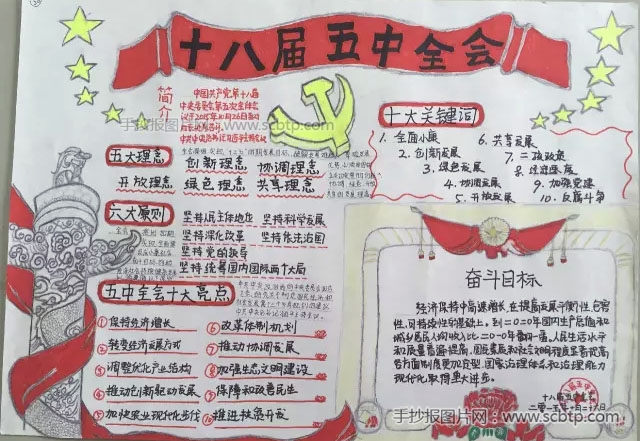 十八届五中全会
简介
中国共产党第十八届
中央委员会第五次全体会
议于2015年10月26日至29
手抄报图片网：www.scbtp.com
五大理念
创新理念 协调理念
开放理念 绿色理念 共享理念
六大原则
坚持人民主体地位 坚持科学发展
坚持深化改革 坚持依法治国
坚持党的领导
坚持统筹国内国际两个大局
五中全会十大亮点
①保持经济增长
②转变经济发展方式
③调整优化产业结构
④推动创新驱动发展
⑤加快农业现代化步伐
⑥改革体制机制
⑦推动协调发展
⑧加强生态文明建设
⑨保障和改善民生
⑩推进扶贫开发
十大关键词
1. 全面小康
2. 创新发展
3. 绿色发展
4. 协调发展
5. 开放发展
6. 共享发展
7. 二孩政策
8. 法治建设
9. 加强党建
10. 反腐斗争
奋斗目标
经济保持中高速增长,在提高发展平衡性,包容
性,可持续性的基础上,到二〇二〇年国内生产总值和
城乡居民人均收入比二〇一〇年翻一番,人民生活水平
和质量普遍提高,国民素质和社会文明程度显著提高
各方面制度更加定型,国家治理体系和治理能力
现代化取得重大进步。
手抄报图片网：www.scbtp.com